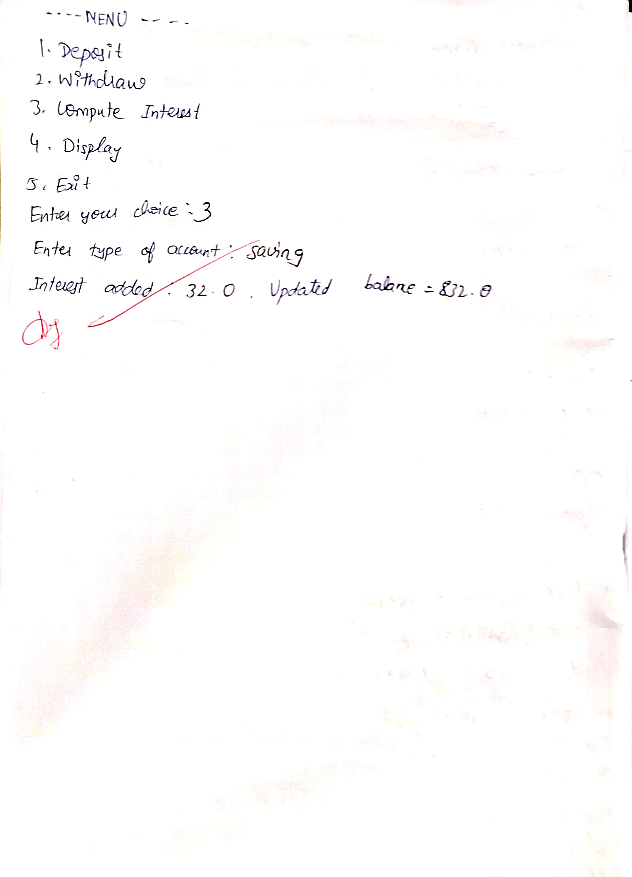 ---- MENU ----
1. Deposit
2. Withdraw
3. Compute Interest
4. Display
5. Exit
Enter your choice : 3
Enter type of account : saving
Interest added : 32.0 . Updated balane = 832.0